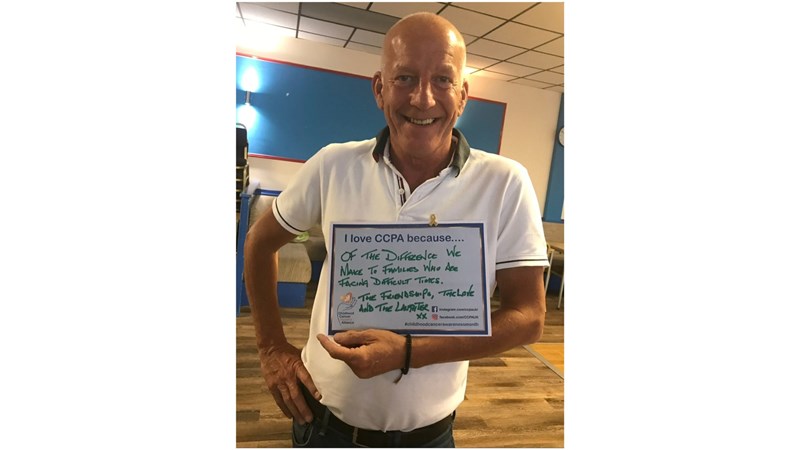 I love CCPA because....
OF THE DIFFERENCE WE
MAKE TO FAMILIES WHO ARE
FACING DIFFICULT TIMES.
THE FRIENDSHIPS, THE LOVE
AND THE LAUGHTER
XX